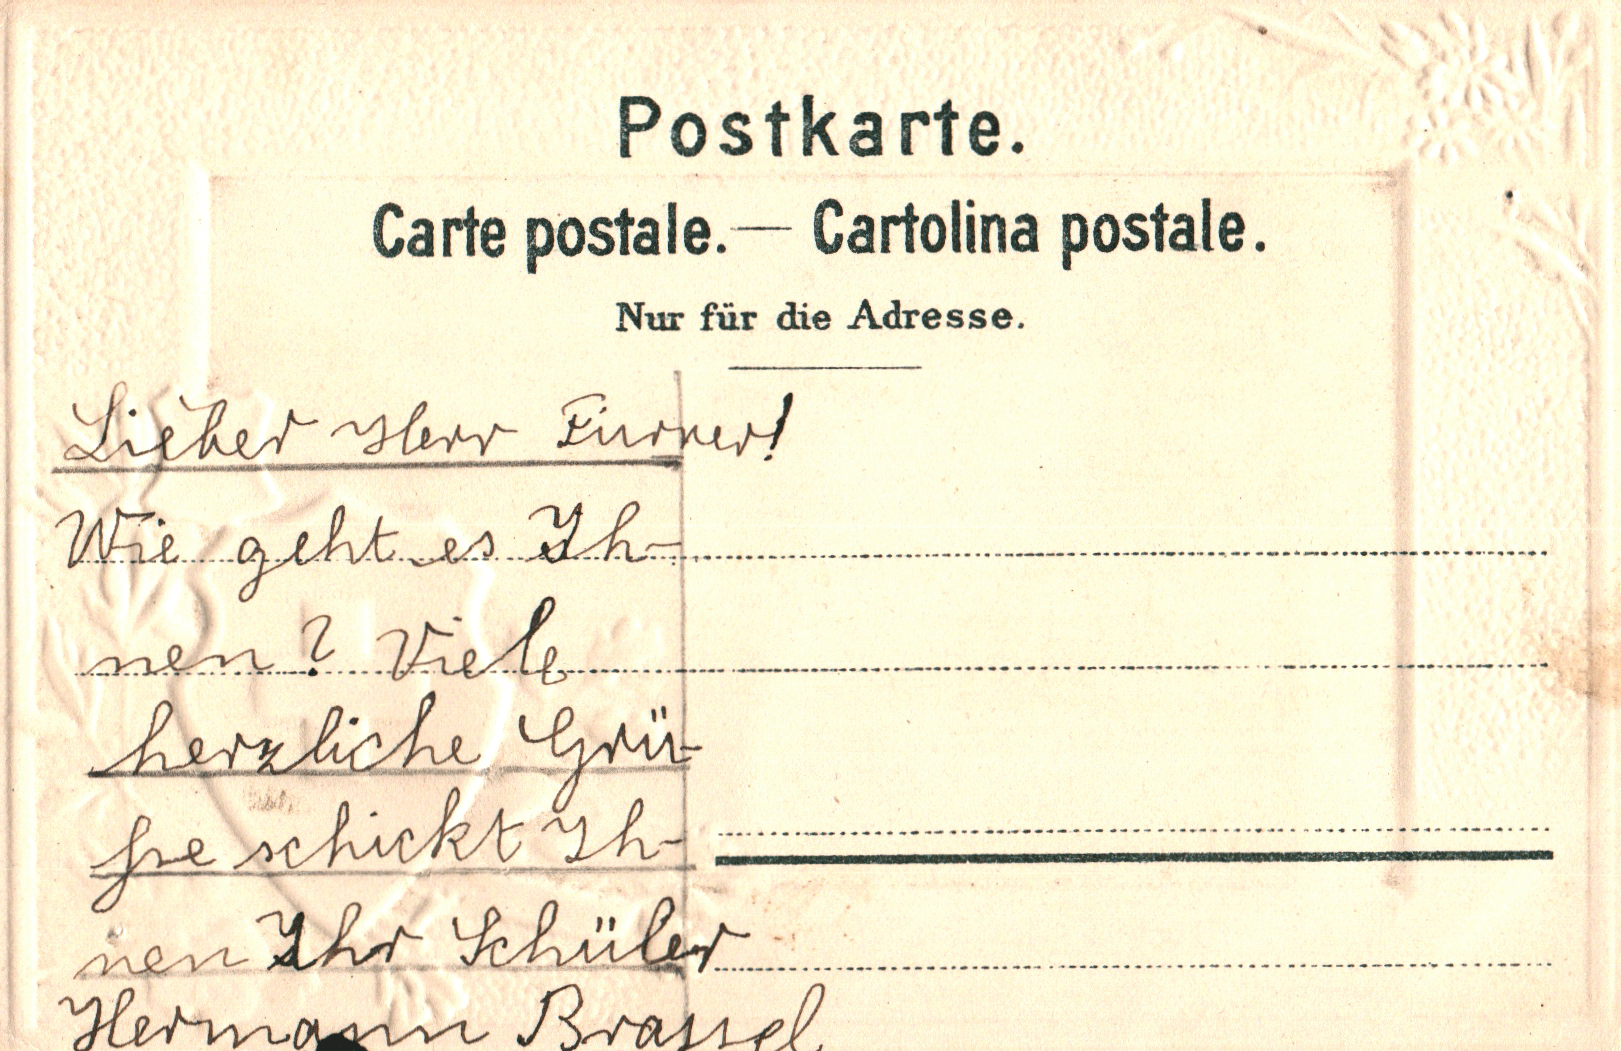 Postkarte.
Carte postale. — Cartolina postale.
Nur für die Adresse.
Lieber Herr Furrer!
Wie geht es Ih-
nen? Viele
herzliche Grü-
sse schickt Ih-
nen Ihr Schüler
Hermann Brassel